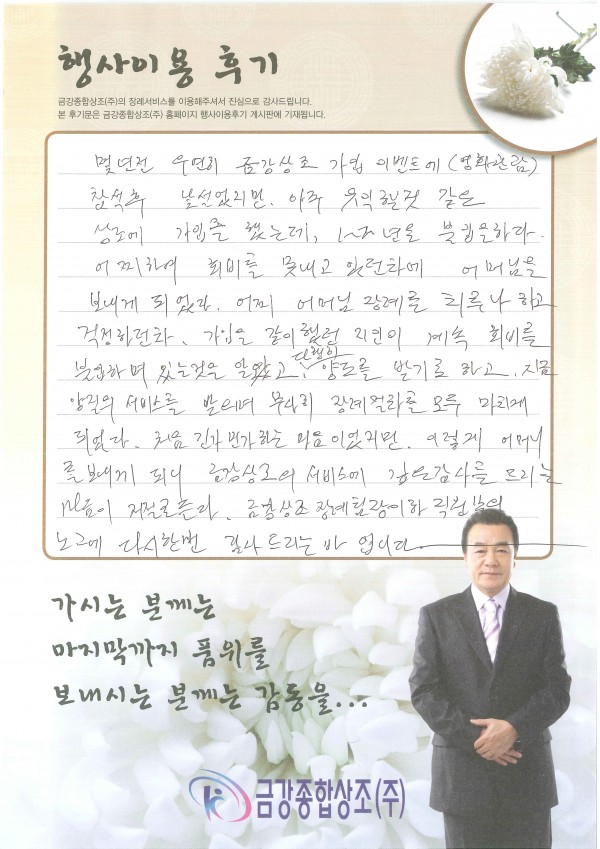 행사이용 후기
금강종합상조(주)의 장례서비스를 이용해주셔서 진심으로 감사드립니다.
본 후기문은 금강종합상조(주) 홈페이지 행사이용후기 게시판에 기재됩니다.
몇년전 우연히 금강상조 가입 이벤트에 (영화관람)
참석후 낯설었지만, 아주 유익할것 같은
상조에 가입을 했는데, 1~2년을 불입을하다.
어찌하여 회비를 못내고 있던차에 어머님을
보내게 되었다. 어찌 어머님 장례를 치루나 하고
걱정하던차, 가입을 같이했던 지인이 계속 회비를
불입하며 있는것을 알았고, 다행히 양도를 받기로 하고, 지금
양질의 서비스를 받으며 무사히 장례절차를 모두 마치게
되었다. 처음 긴가민가하는 마음이었지만, 이렇게 어머니
를 보내게 되니 금강상조의 서비스에 깊은감사를 드리는
마음이 저절로든다. 금강상조 장례팀장이하 직원분의
노고에 다시한번 감사드리는 바 입니다.
가시는 분께는
마지막까지 품위를
보내시는 분께는 감동을...
금강종합상조(주)